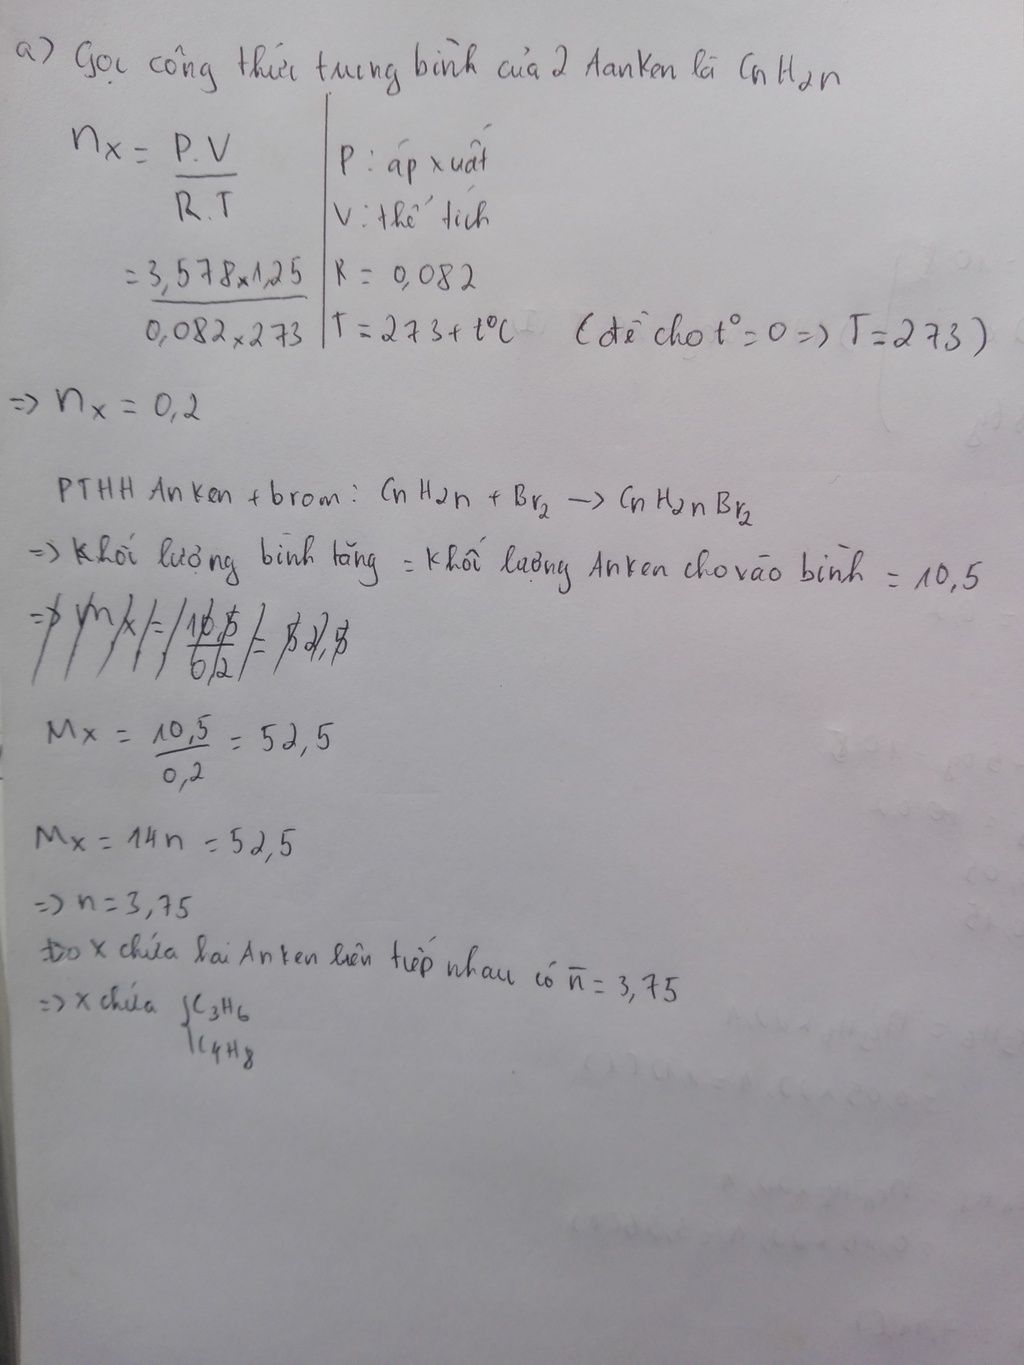 a) Gọi công thức trung bình của 2 Aanken là CnH2n
nx = P.V / R.T
P : áp xuất
V : thể tích
= 3,578 x 1,25 / 0,082 x 273
R = 0,082
T = 273 + t°C (đề cho t° = 0 => T = 273)
=> nx = 0,2
PTHH Anken + brom : CnH2n + Br2 -> CnH2nBr2
=> Khối lượng bình tăng = khối lượng Anken cho vào bình = 10,5
=> Mx = 10,5 / 0,2 = 52,5
Mx = 10,5 / 0,2 = 52,5
Mx = 14n = 52,5
=> n = 3,75
Do X chứa hai Anken liên tiếp nhau có n̄ = 3,75
=> X chứa { C3H6
C4H8